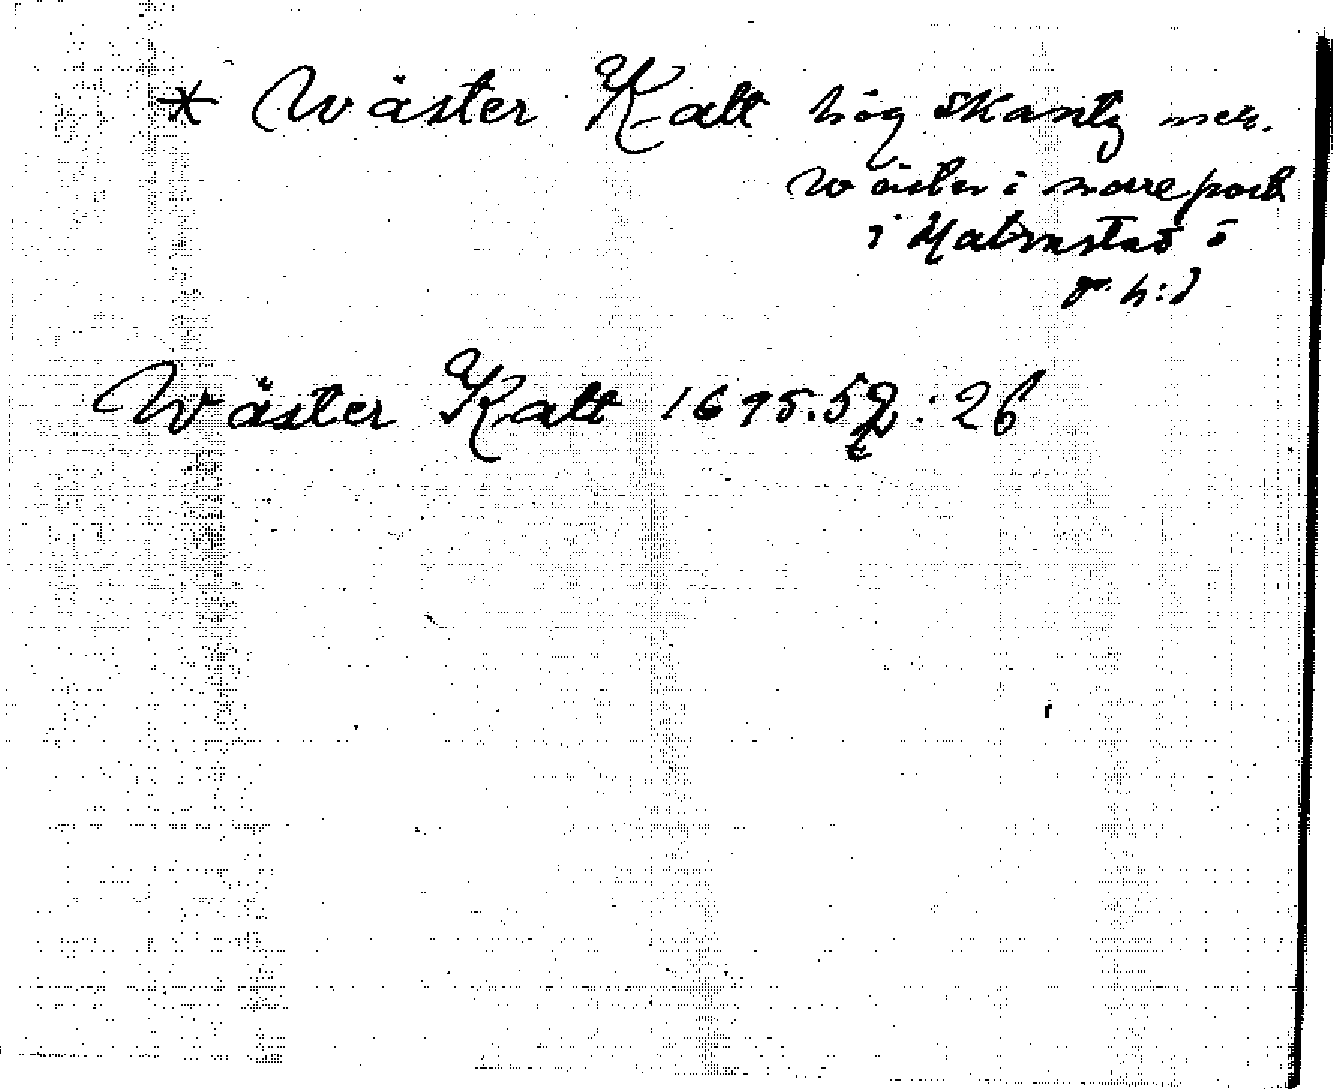 * Wäster Katt hög Skantz ner.
Wäster i norreport
i Halmstad i
h:d
Wäster Katt 1675.52:26